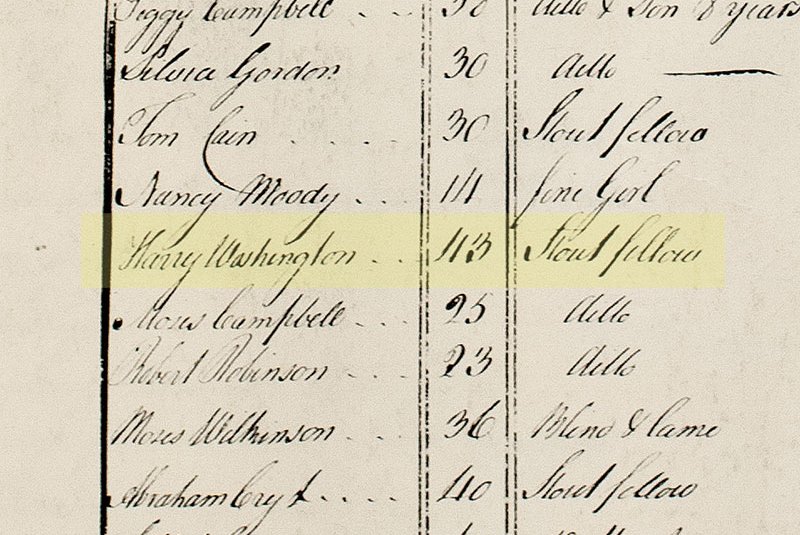 Peggy Campbell . . . 30 ditto & Son 8 years
Silvia Gordon 30 ditto
Tom Cain . . . . . 30 Stout fellow
Nancy Moody . . . 14 fine Girl
Harry Washington . . . 43 Stout fellow
Moses Campbell . . . 25 ditto
Robert Robinson . . . 23 ditto
Moses Wilkinson . . . 36 Blind & lame
Abraham Cry . . . . 40 Stout fellow